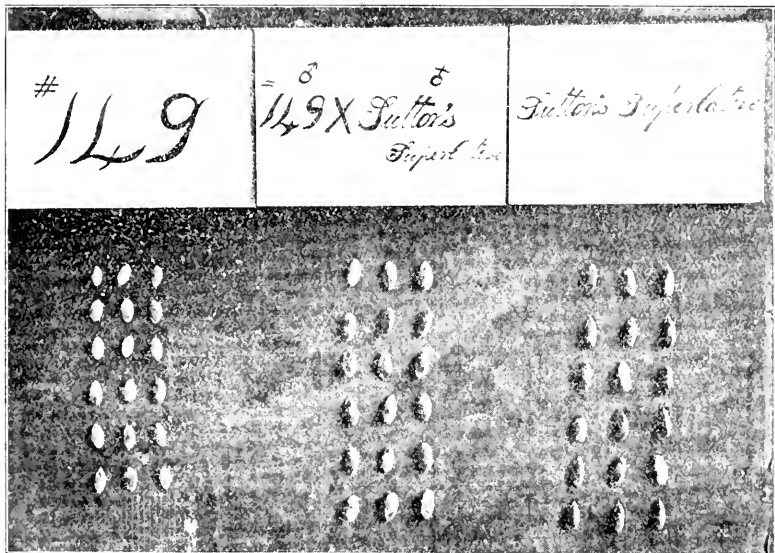 #149
♂ ♀
149 X Sutton's
Superlative
Sutton's Superlative